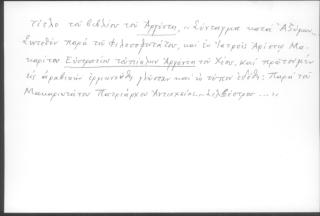 Τίτλο τοῦ βιβλίου τοῦ Ἀργέντη, "Σύνταγμα κατὰ Ἀζύμων...
Συντεθὲν παρὰ τοῦ φιλοσοφωτάτου, καὶ ἐν Ἰατροῖς Ἀρίστου Μα-
καρίτου Εὐστρατίου τοὐπίκλην Ἀργέντη τοῦ Χίου, καὶ πρῶτον μὲν
εἰς ἀραβικὴν ἑρμηνευθὲν γλῶσσαν καὶ ἐν τύπῳ ἐκδοθέν: Παρὰ τοῦ
Μακαριωτάτου Πατριάρχου Ἀντιοχείας, Σιλβέστρου ..."